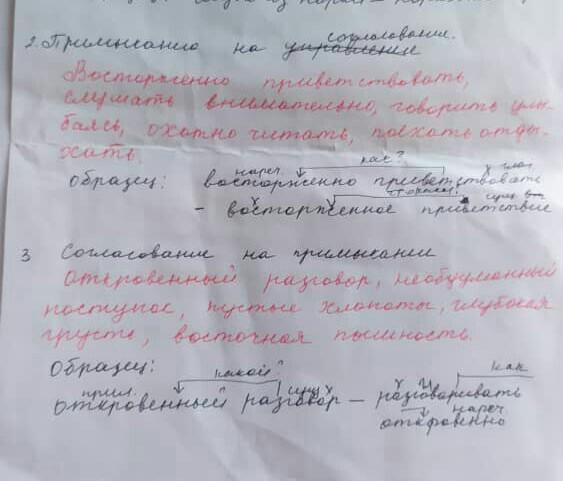 согласование.
2. Примыканию на управление
Восторженно приветствовать,
слушать внимательно, говорить улы-
баясь, охотно читать, поехать отды-
хать.
нареч. как? глаг.
Образец: восторженно приветствовать
сущ.
- восторженное приветствие
3 Согласование на примыкании
Откровенный разговор, необдуманный
поступок, пустые хлопоты, глубокая
грусть, восточная пышность.
Образец: какой? как
прил. сущ
откровенный разговор – разговаривать
нареч
откровенно